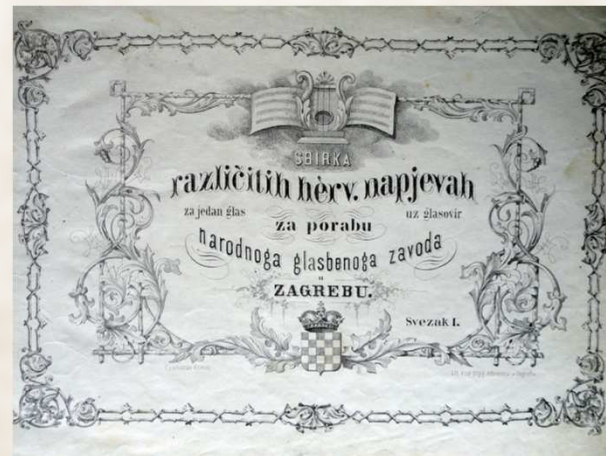 SBIRKA
različitih hèrv. napjevah
za jedan glas
uz glasovir
za porabu
narodnoga glasbenoga zavoda
u
ZAGREBU.
Svezak I.